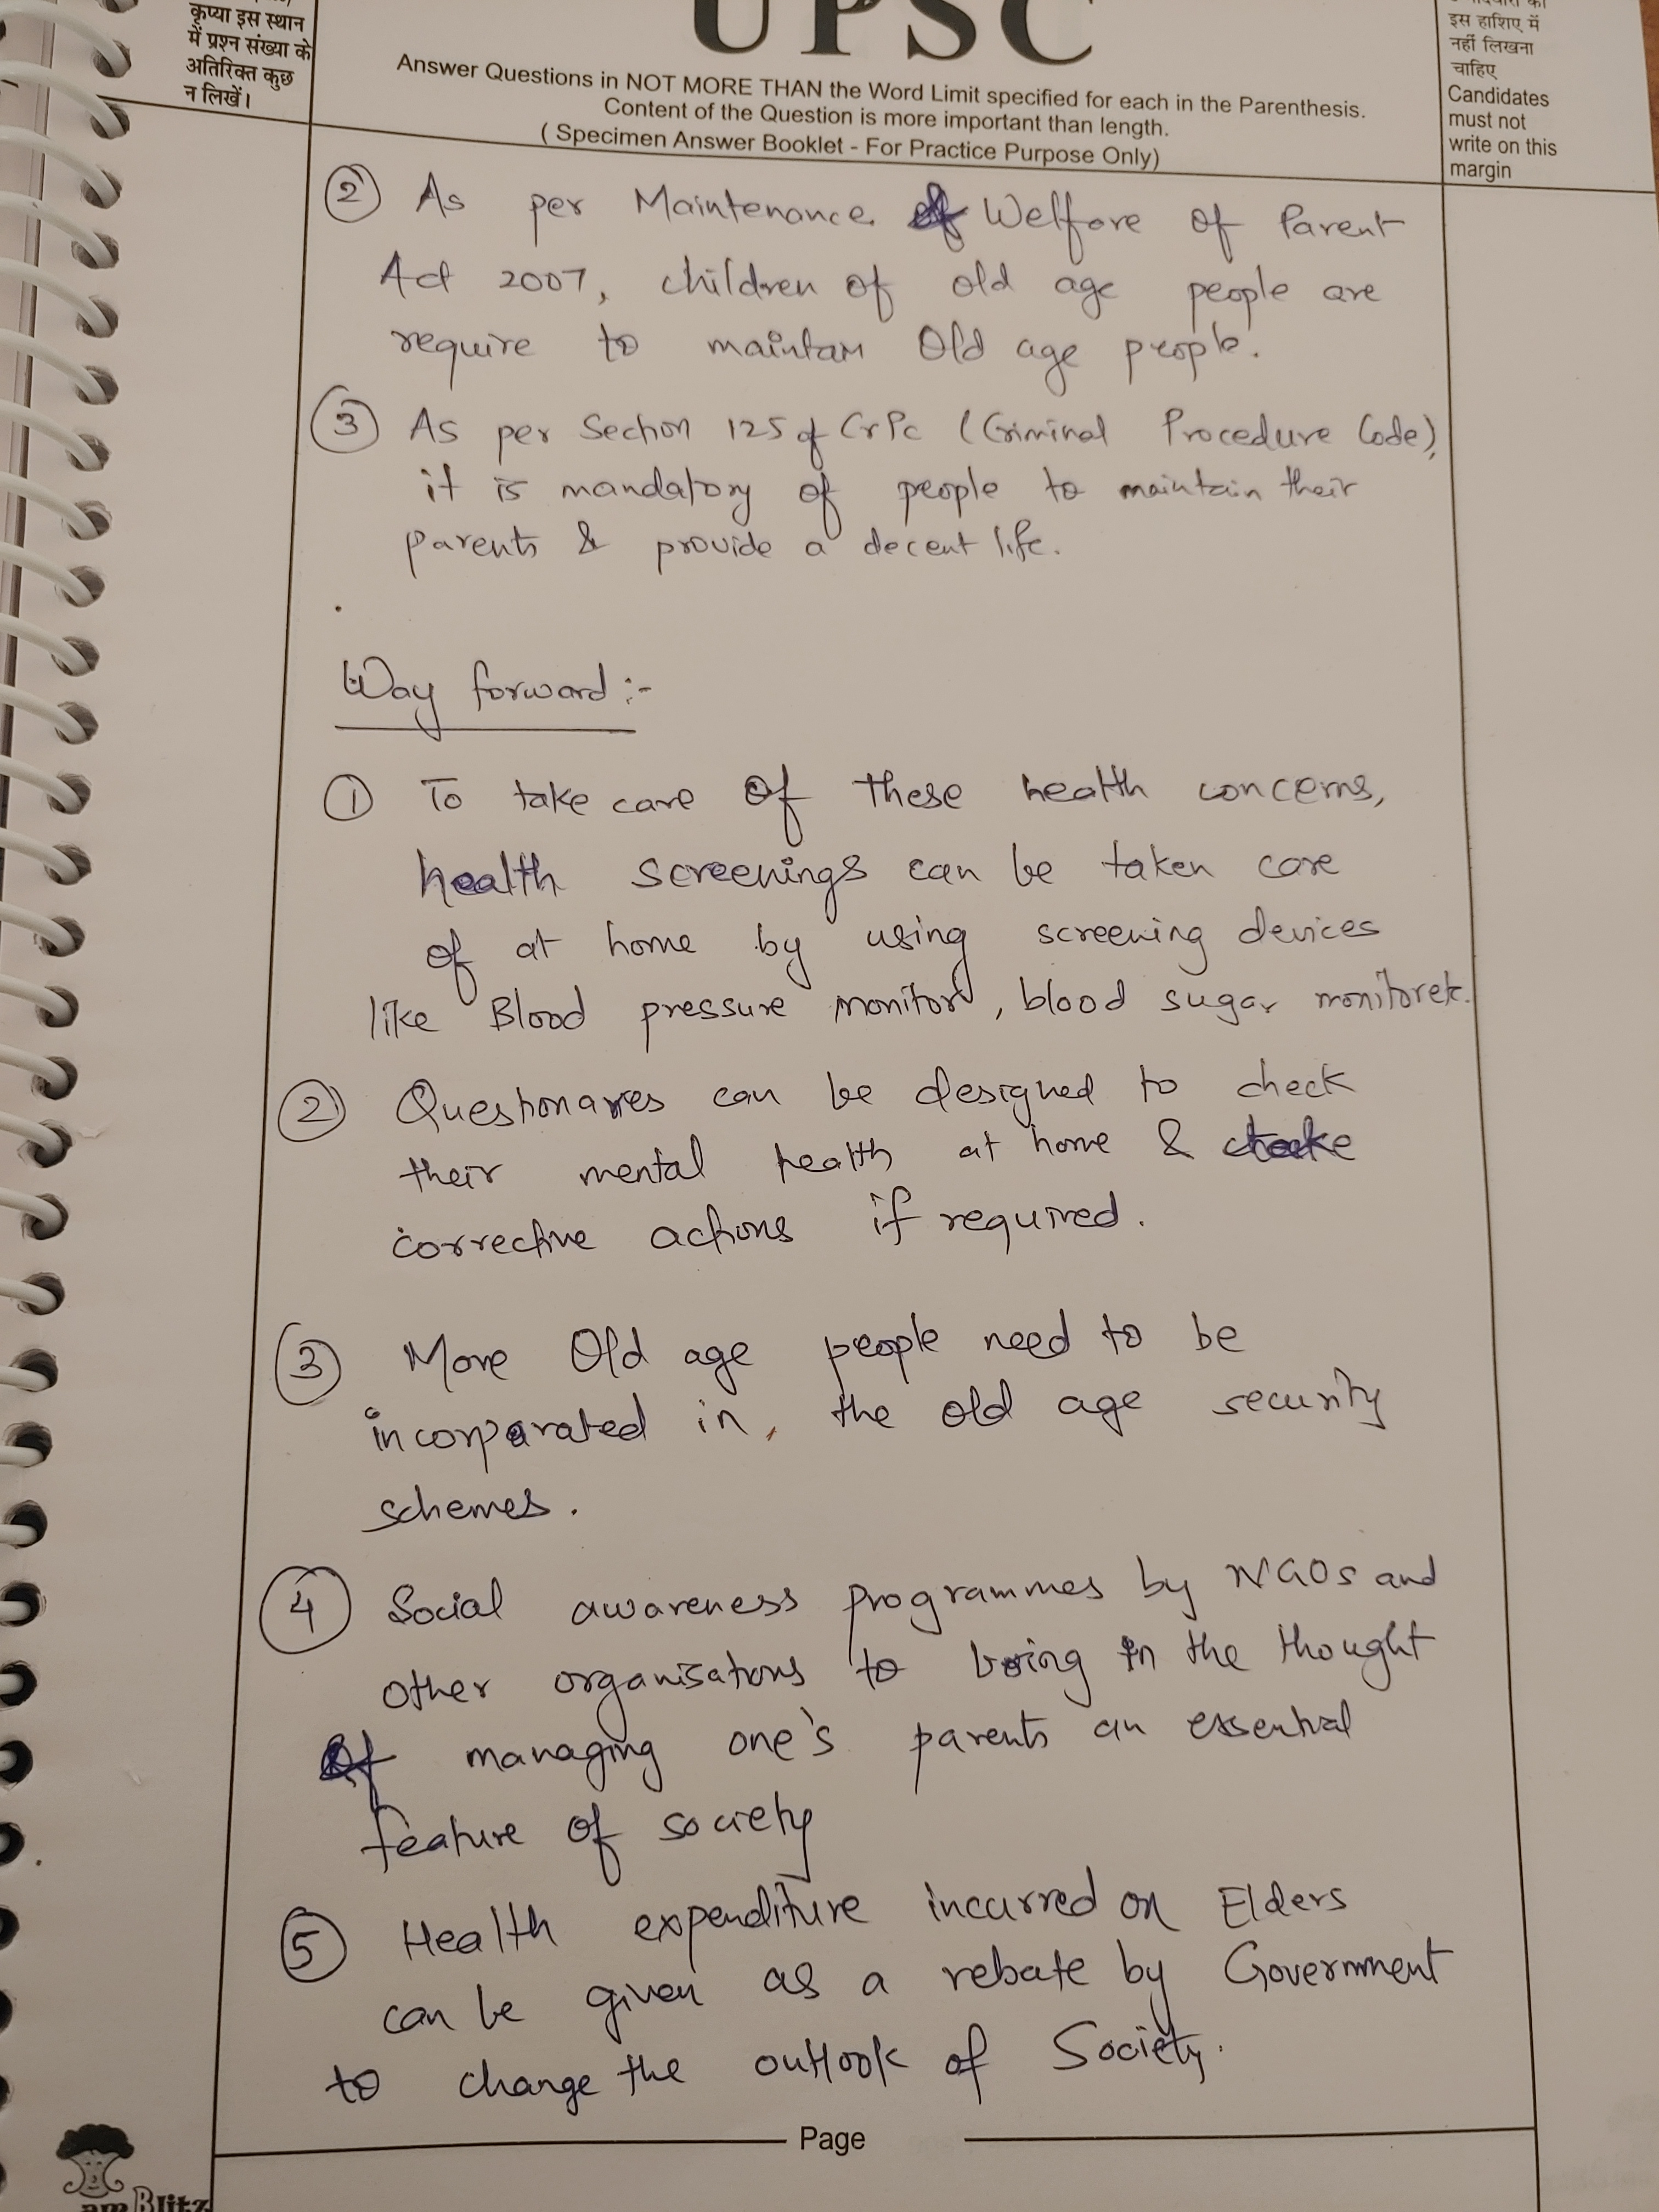 कृप्या इस स्थान
में प्रश्न संख्या के
अतिरिक्त कुछ
न लिखें।
UPSC
Answer Questions in NOT MORE THAN the Word Limit specified for each in the Parenthesis.
Content of the Question is more important than length.
( Specimen Answer Booklet - For Practice Purpose Only)
इस हाशिए में
नहीं लिखना
चाहिए
Candidates
must not
write on this
margin
② As per Maintenance & Welfare of Parent
Act 2007, children of old age people are
require to maintain Old age people.
③ As per Section 125 of CrPc (Criminal Procedure Code),
it is mandatory of people to maintain their
parents & provide a decent life.
Way forward :-
① To take care of these health concerns,
health screenings can be taken care
of at home by using screening devices
like Blood pressure monitor, blood sugar monitor etc.
② Questionaries can be designed to check
their mental health at home & take
corrective actions if required.
③ More Old age people need to be
incorporated in, the old age security
schemes.
④ Social awareness programmes by NGOs and
other organisations to bring in the thought
of managing one's parents an essential
feature of society
⑤ Health expenditure incurred on Elders
can be given as a rebate by Government
to change the outlook of Society.
Page
am Blitz